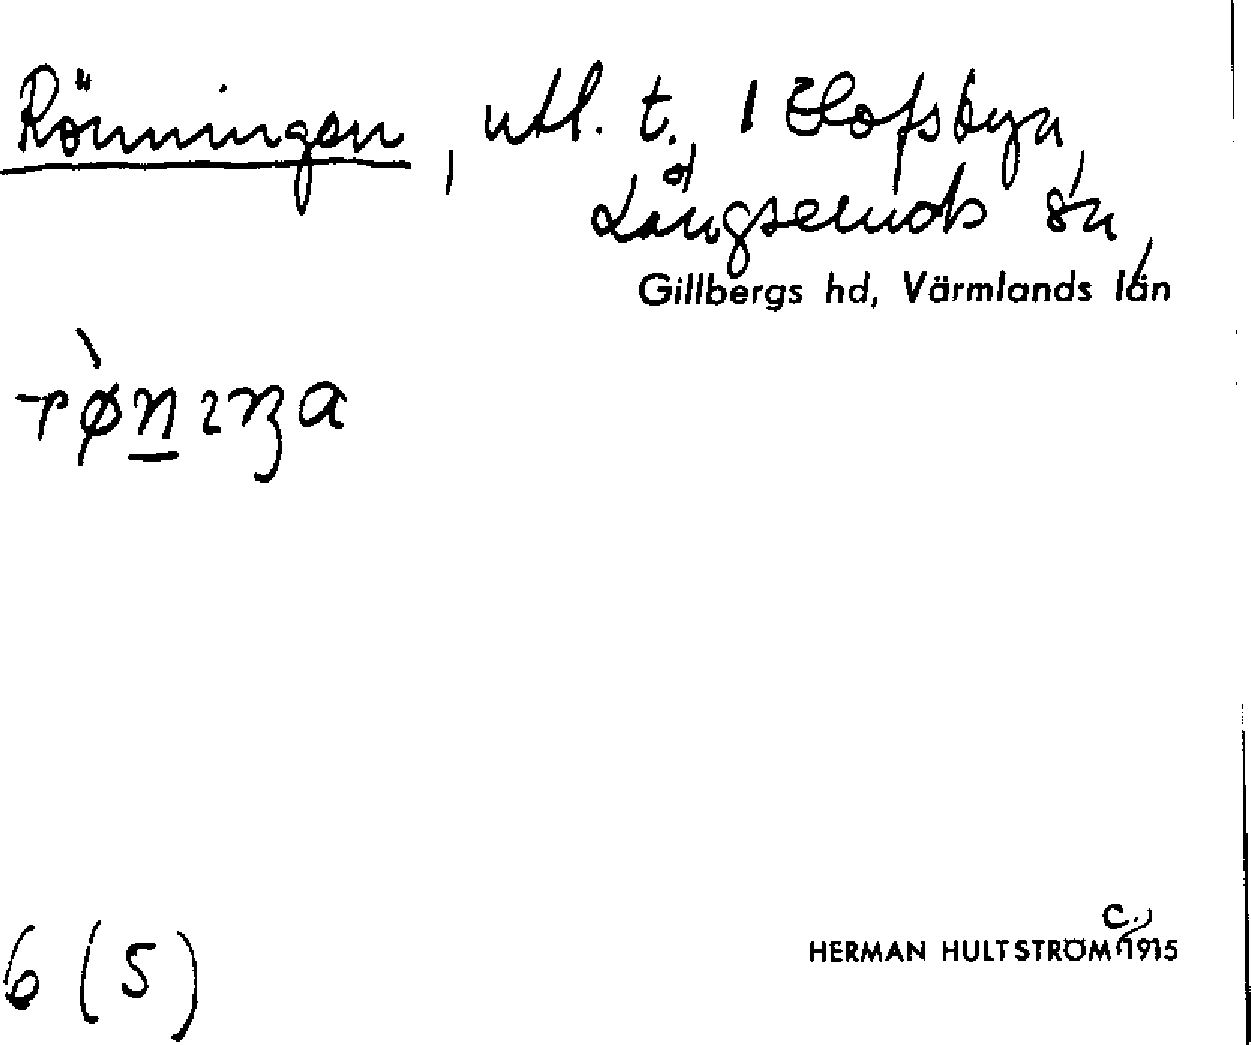 Rönningen, utl. t. 1 Elofsbyn,
Långseruds sn,
Gillbergs hd, Värmlands län
6 (5)
HERMAN HULTSTRÖM, c. 1915